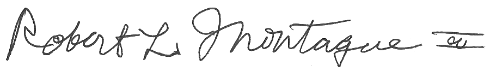 Robert L. Montague III